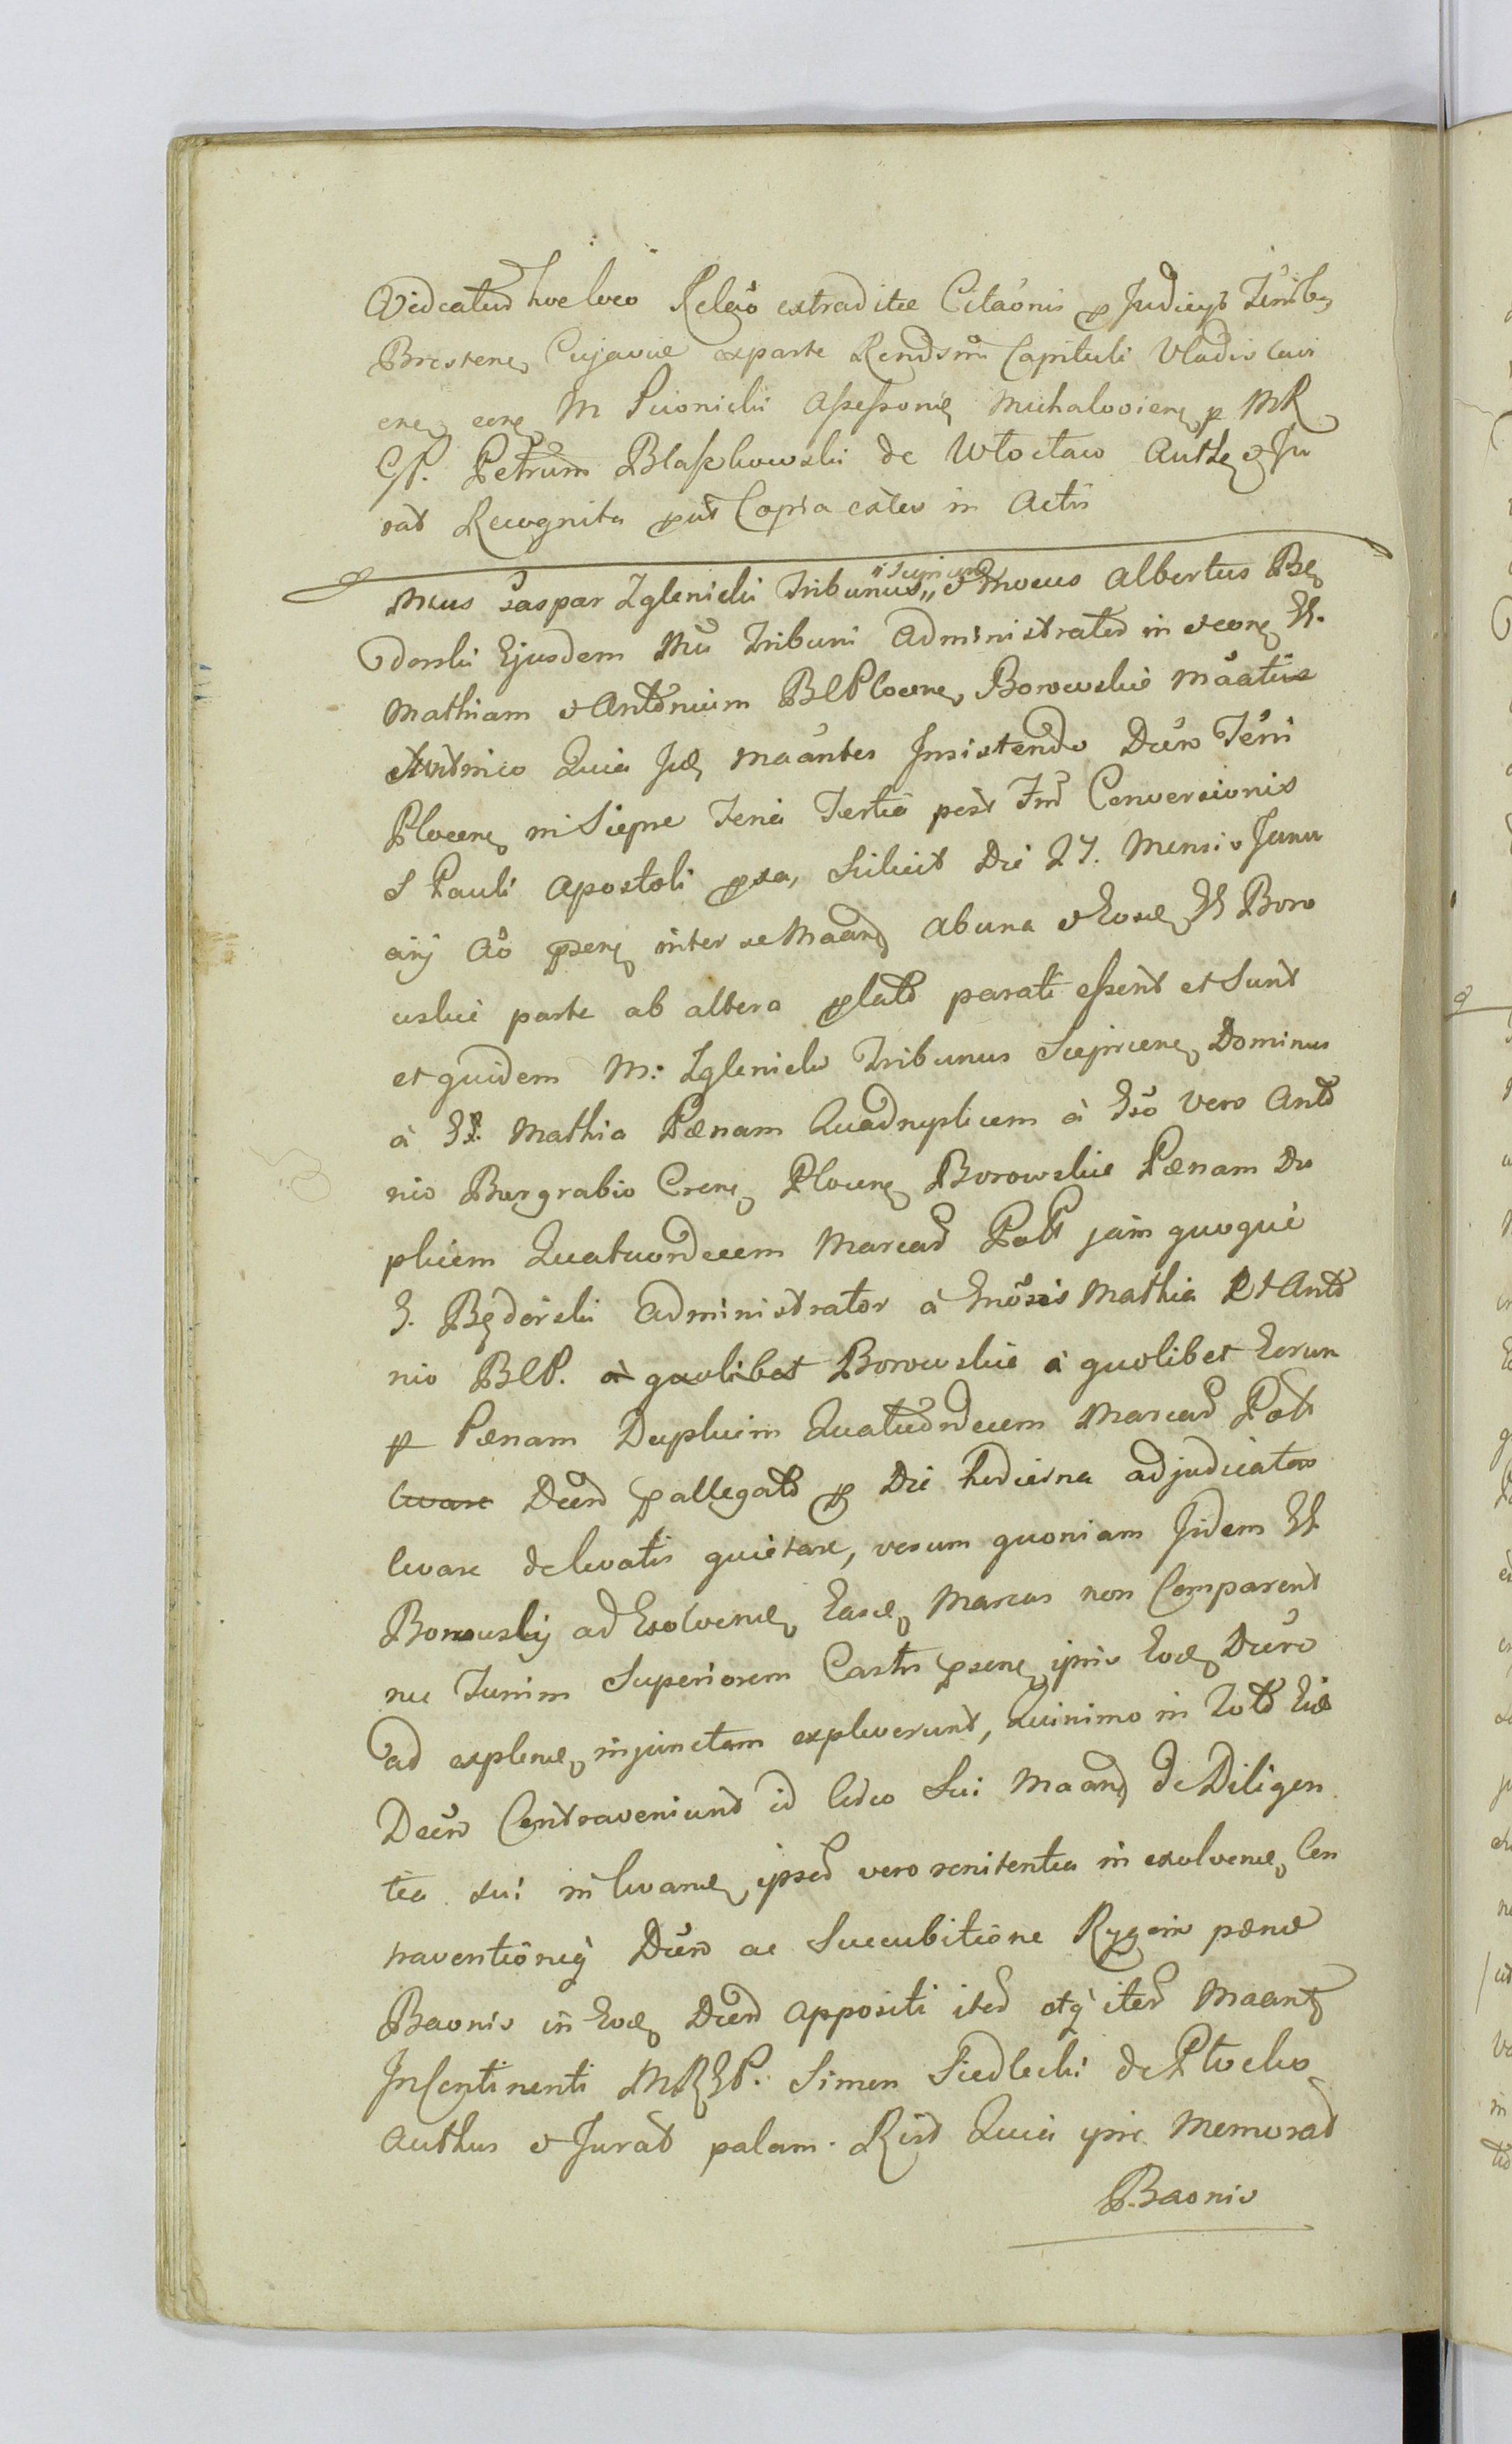 Videatur hoc loco Relaô extraditæ Citaônis p Judicys Terribus
Brestens Cujaviæ exparte Rendsmi Capituli Vladislavi
ens cont M Pivonicki Assessorem Michaloviens p MR
GP. Petrum Błaszkowski de Włocław Auth et Ju
rat Recognita put Copia extus in Actis
Mcus Gaspar Zglenicki Tribunus "Sieprcens" et Gnosus Albertus Bę
dorski Ejusdem Mci Tribuni Administrator in et cont GG.
Mathiam et Antonium BCPlocens Borowskie maâtus
Quia Ide maântes Insistendo Decro Terri
Plocens in Siepre feria Tertia post Fm Conversionis
S Pauli Apostoli pxa, Scilicet Die 27. Mensis Janu
arij Aô psens inter se Maand ab una et Eosd GG Boro
wskie parte ab altera plato parati essent et Sunt
et quidem M: Zglenicki Tribunus Sieprcens Dominus
à G. Mathia Pænam Quadruplicem à Gso vero Anto
nio Burgrabio Crens Plocens Borowskie Pænam Du
plicem Quatuordecem Marcar Poll jam quoque
G. Będorski Administrator à Gnôsis Mathia Et Anto
nio BCP. à quolibet Borowskie à quolibet Eorum
p Pænam Duplicem Quatuordecem Marcar Poll
levare Decro pallegato p Die hodierna adjudicatas
levare de levatis quietare, verum quoniam Iidem GG
Borowskij ad Exolvend Easd Marcas non Comparent
nec Turrim Superiorem Castri psens ipsis Eod Decro
ad explend injunctam expleverunt, Quinimo in Toto Eid
Decro Contraveniunt id Circo Sui Maand de Diligen
tia sui in levand ipsor vero renitentia in exolvend Con
traventioneq Decro ac Succubitiône Rygoris pænæ
Baonis in Eod Decro appositi iter atq iter Maant
Incontinenti MRGP. Simon Siedlecki de Płocko
Authus et Jurat palam. Rixt Quia ipse Memorat
Baonis